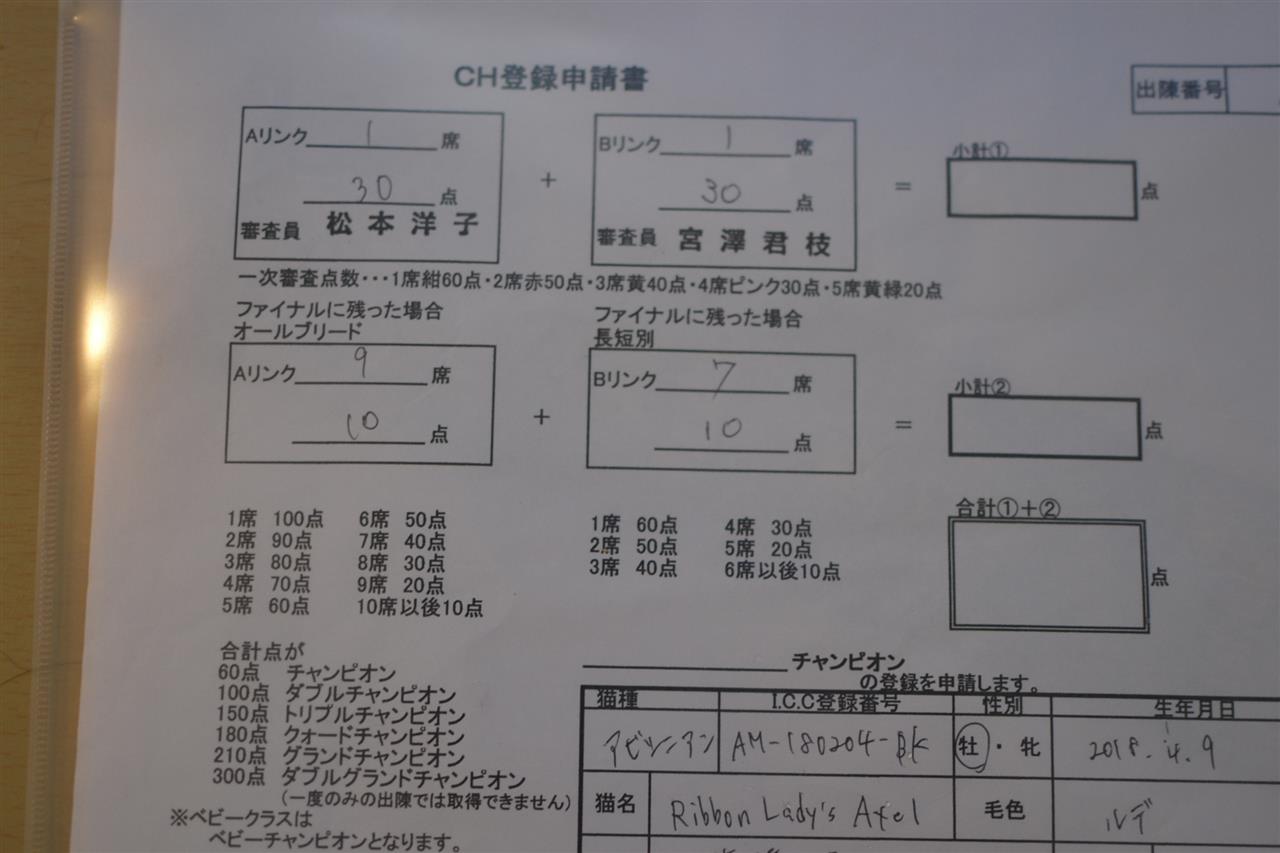 CH登録申請書
出陳番号
Aリンク 1 席
30 点
審査員 松本洋子
+
Bリンク 1 席
30 点
審査員 宮澤君枝
=
小計①
点
一次審査点数・・・1席紺60点・2席赤50点・3席黄40点・4席ピンク30点・5席黄緑20点
ファイナルに残った場合
オールブリード
Aリンク 9 席
10 点
+
ファイナルに残った場合
長短別
Bリンク 7 席
10 点
=
小計②
点
1席 100点 6席 50点
2席 90点 7席 40点
3席 80点 8席 30点
4席 70点 9席 20点
5席 60点 10席以後10点
1席 60点 4席 30点
2席 50点 5席 20点
3席 40点 6席以後10点
合計①+②
点
合計点が
60点 チャンピオン
100点 ダブルチャンピオン
150点 トリプルチャンピオン
180点 クォードチャンピオン
210点 グランドチャンピオン
300点 ダブルグランドチャンピオン
(一度のみの出陳では取得できません)
※ベビークラスは
ベビーチャンピオンとなります。
チャンピオン
の登録を申請します。
猫種 I.C.C登録番号 性別 生年月日
アビシニアン AM-180204-BK 牡・牝 2018.4.9
猫名 Ribbon Lady's Axel 毛色 ルデ